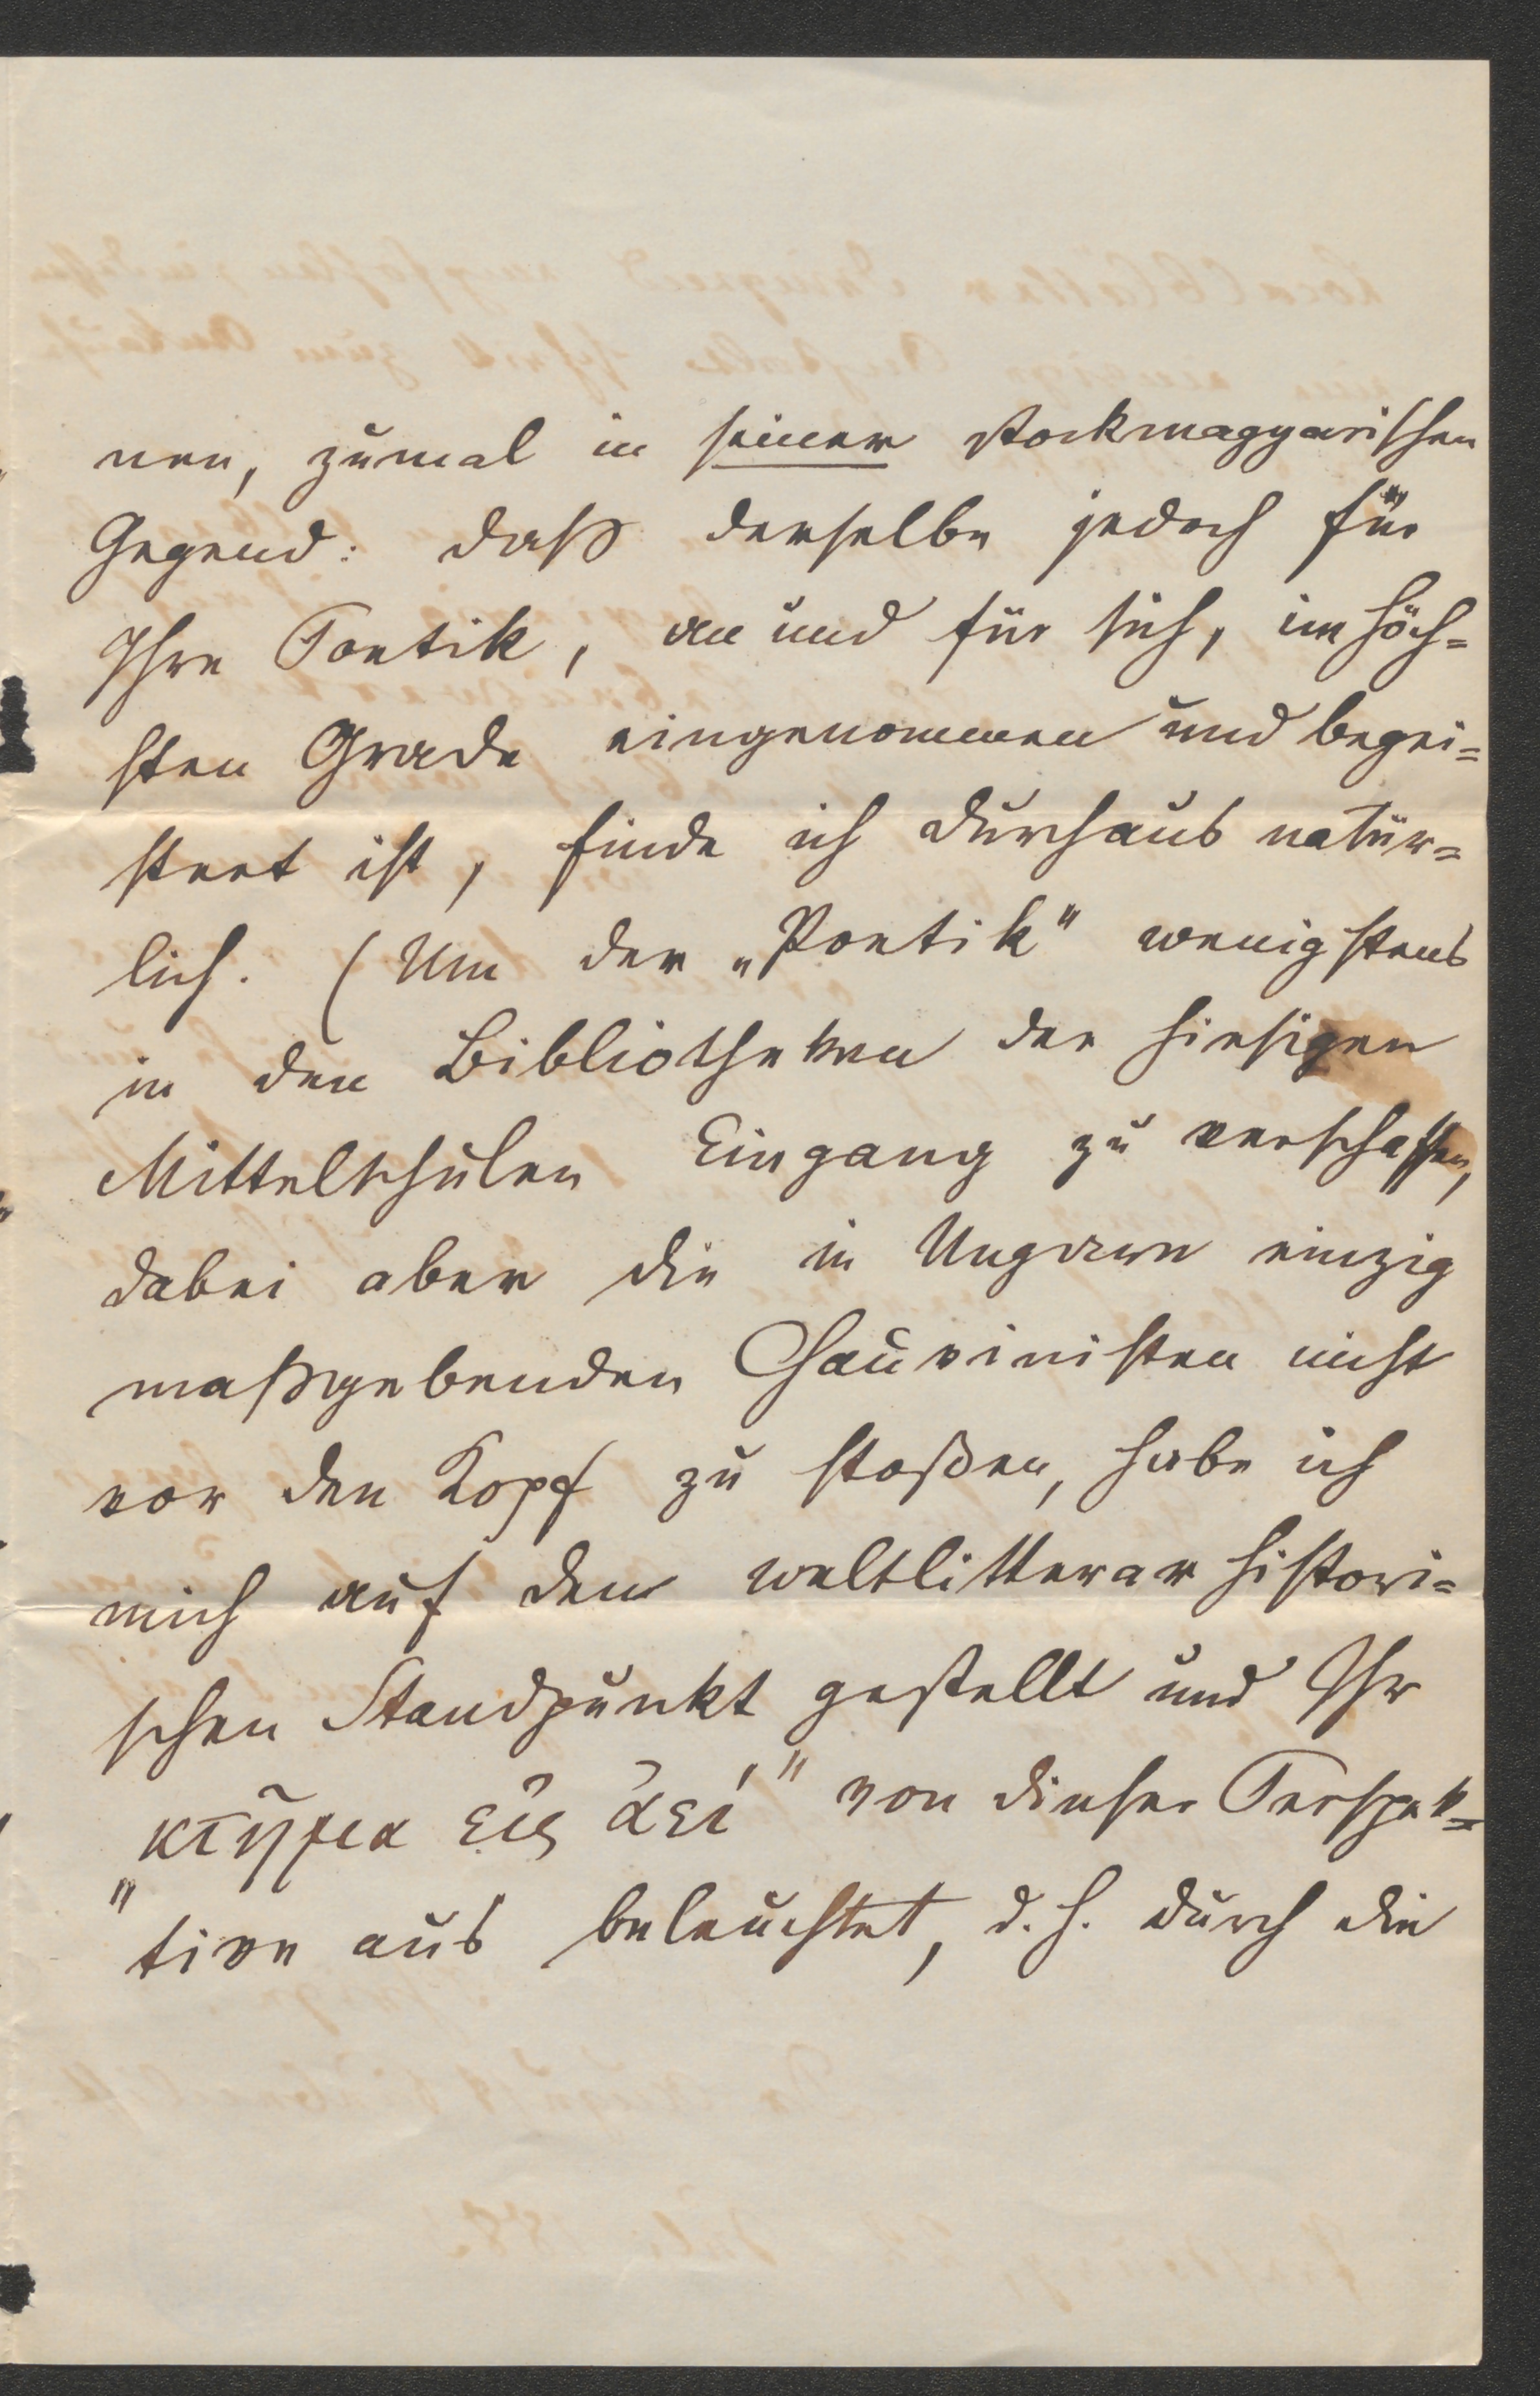 nen, zumal in seiner stockmagyarischen
Gegend: daß derselbe jedoch für
Ihre Poetik, an und für sich, im höch=
sten Grade eingenommen und begei=
stert ist, finde ich durchaus natür=
lich. (Um der „Poetik" wenigstens
in den Bibliotheken der hiesigen
Mittelschulen Eingang zu verschaffen,
dabei aber die in Ungarn einzig
maßgebenden Chauvinisten nicht
vor den Kopf zu stoßen, habe ich
mich auf den weltlitterarhistori=
schen Standpunkt gestellt und Ihr
„κτῆμα εἰς ἀεί" von dieser Perspek=
tive aus beleuchtet, d. h. durch die